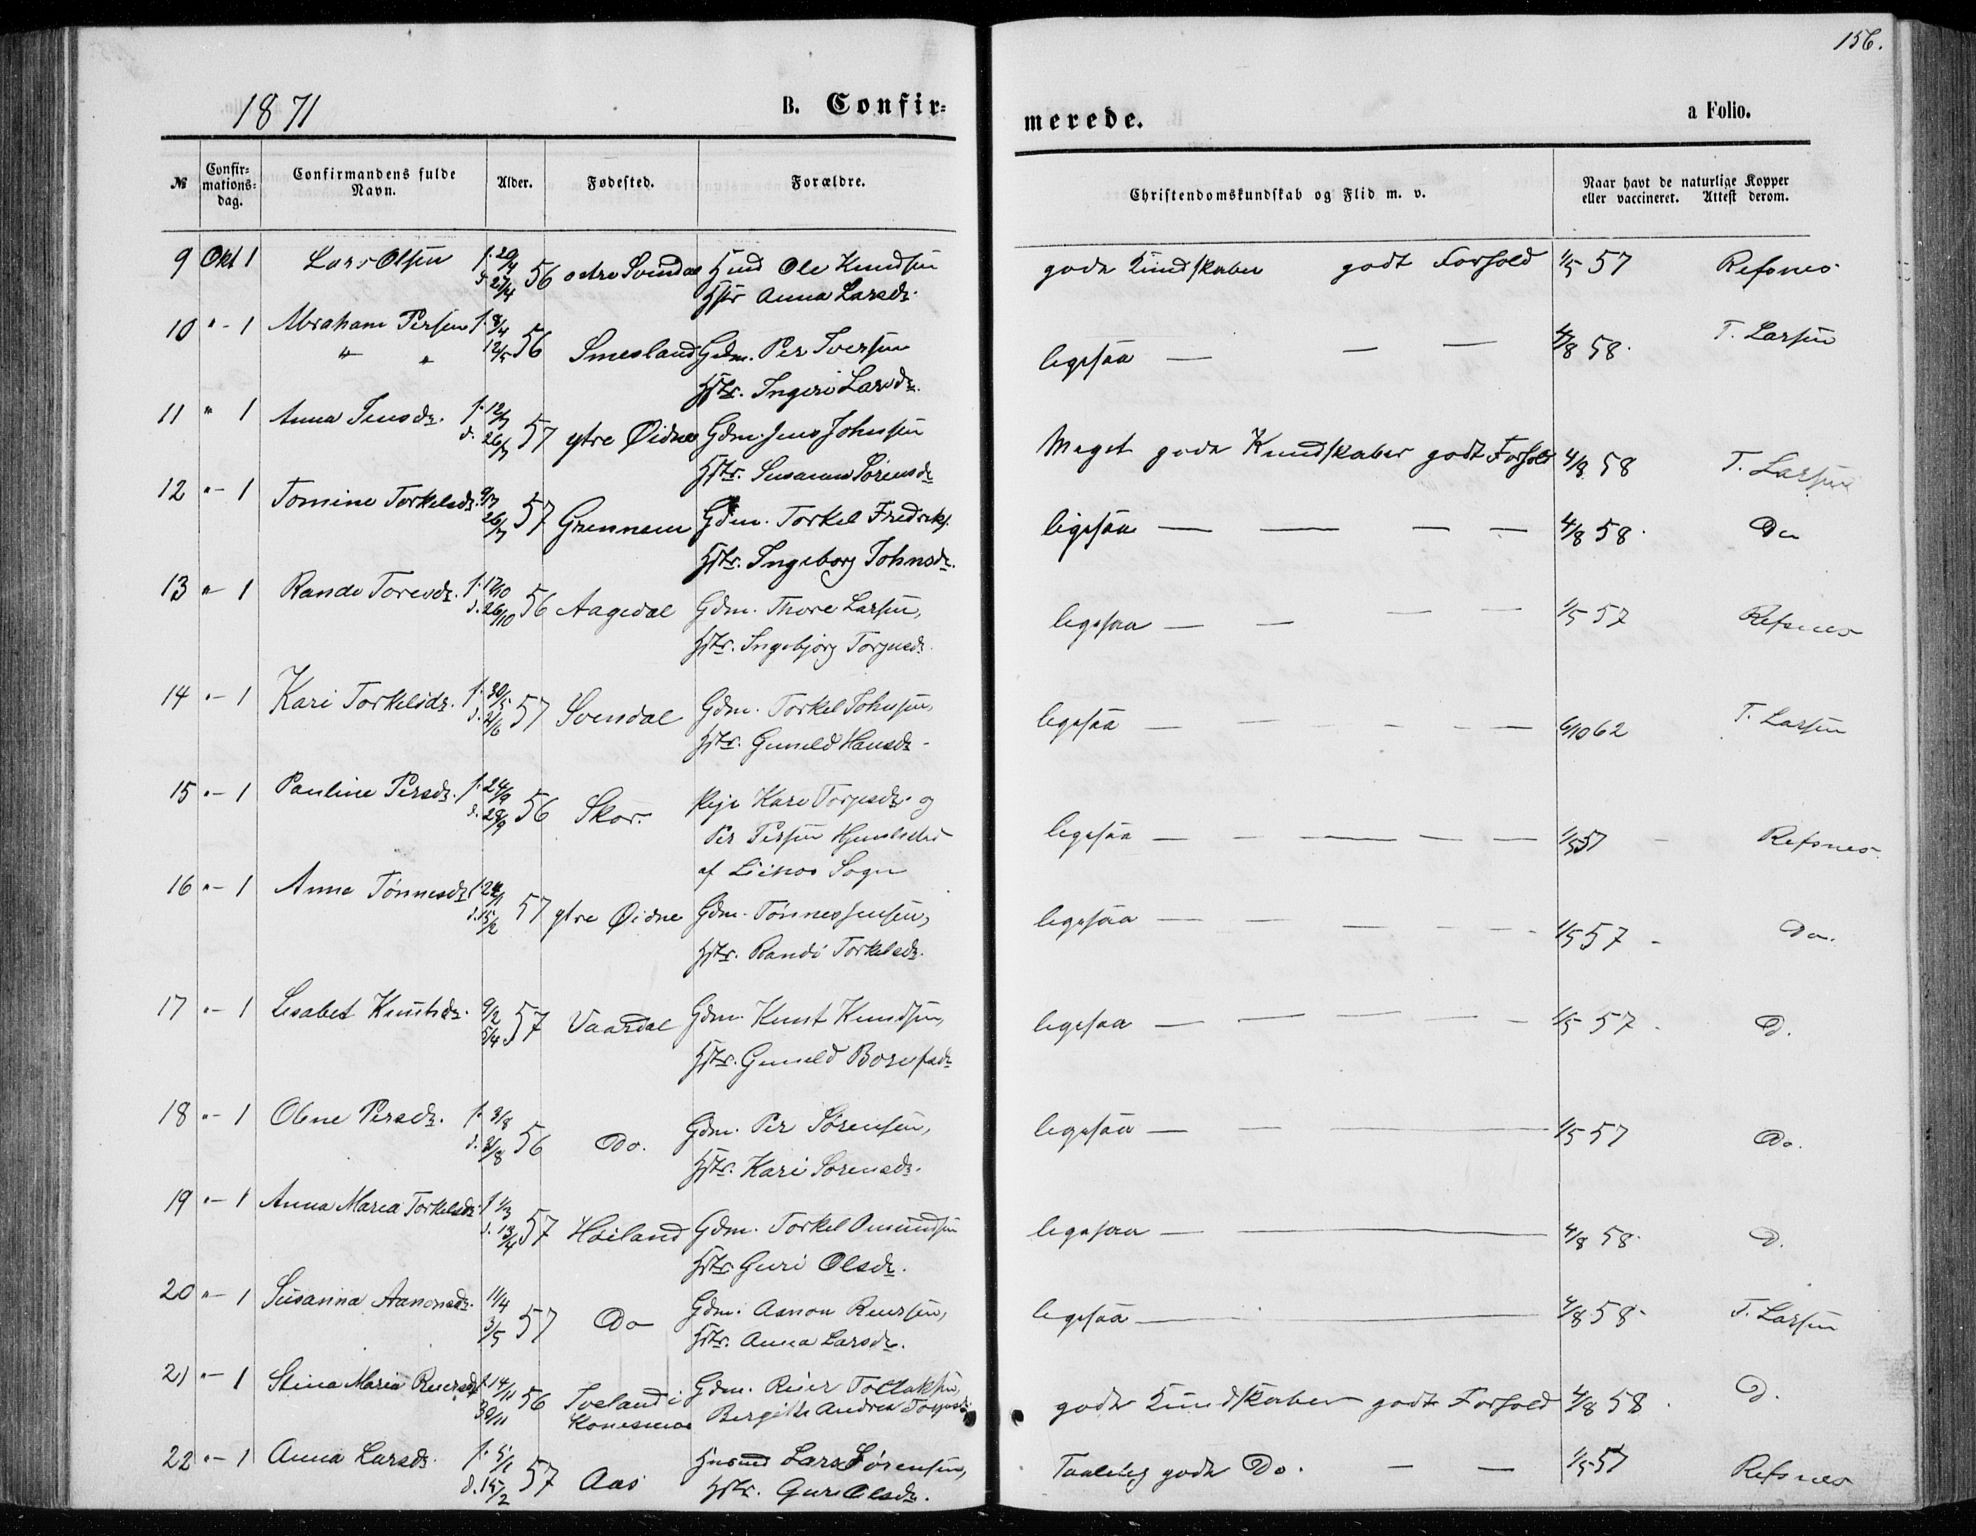 156.
1871
B. Confir-
merede.
a Folio.
№ Confir-mations-dag. Confirmandens fulde Navn. Alder. Fødested. Forældre. Christendomskundskab og Flid m. v. Naar havt de naturlige Kopper eller vaccineret. Attest derom.
9 Okt 1 Lars Olsen f. 20/4 56 Svindal Ole Knudsen gode Kundskaber godt Forhold 1/5 57 Refsnes
d. 27/4 Hstr Anna Larsdr.
10 " - 1 Abraham Persen f. 8/4 56 Smesland Gdm. Per Iversen ligesaa — — — 4/8 58. T. Larsen
" " 12/5 Hstr. Ingeri Larsdr.
11 " 1 Anna Jensdr. f. 12/7 57 ytre Øidne Gdm. Jens Johnsen Meget gode Kundskaber godt Forhold 4/8 58 T. Larsen
d. 26/7 Hstr. Susanne Sørensdr
12 " - 1 Tomine Torkelsdr. 9/7 57 Grennem Gdm. Torkel Fredriks. ligesaa — — — — 4/8 58. Do
26/7 Hstr. Ingeborg Johnsdr.
13 " 1 Rande Toresdr. f. 17/10 56 Aagedal Gdm. Thore Larsen, ligesaa — — — — 1/5 57 Refsnes
d. 26/10 Hstr. Ingebjørg Torjusdr.
14 " - 1 Kari Torkelsdr. f. 30/5 57 Svendal Gdm. Torkel Johnsen, ligesaa — — — — — 6/10 62 T. Larsen
d. 2/6 Hstr. Gunild Hansdr.
15 " - 1 Pauline Persdr. f. 24/9 56 Skor. Pige Kari Torjusdr. og ligesaa — — — — — — 1/5 57 - Refsnes.
d. 28/9 Per Persen
af Sogn
16 " - 1 Anne Tønnesdr f. 24/1 57 ytre Øidne Gdm. Tønnes Jensen, ligesaa — — — — — 1/5 57 - Do.
d. 15/2 Hstr. Randi Torkelsdr.
17 " - 1 Lisabet Knutsdr. 9/2 57 Vaardal Gdm. Knut Knudsen, ligesaa — — — — — 1/5 57 - D.
5/4 Hstr. Gunild
18 " - 1 Olene Persdr. f. 3/8 56 Do. Gdm. Per Sørensen, ligesaa — — — 1/5 57 Do.
d. 3/8 Hstr. Kari Sørensdr.
19 " - 1 Anna Maria Torkelsdr f. 1/3 57 Høiland Gdm. Torkel Omundsen ligesaa — — 4/8 58. D.
d. 13/4 Hstr Guri Olsdr.
20 " - 1 Susanna Aanonsdr. 11/4 57 Do Gdm. Aanon Reiersen, ligesaa — 4/8 58 - T. Larsen
3/5 Hstr. Anna Larsdr.
21 " - 1 Stina Maria Reiersdr f. 14/11 56 Gdm. Reier Tollaksen, gode Kundskaber godt Forhold 4/8 58. D.
30/11 Konesmo Bergithe Andrea
22 " - 1 Anna Larsdr. f. 5/1 57 Aas Lars Sørensen, Taalelig gode Do. — — 1/5 57 Refsnes
d. 15/2 Hstr. Guri Olsdr.